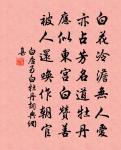 白花冷澹無人愛
亦占芳名道牡丹
應似東宮白贊善
被人還喚作朝官
白居易白牡丹詞典網
集